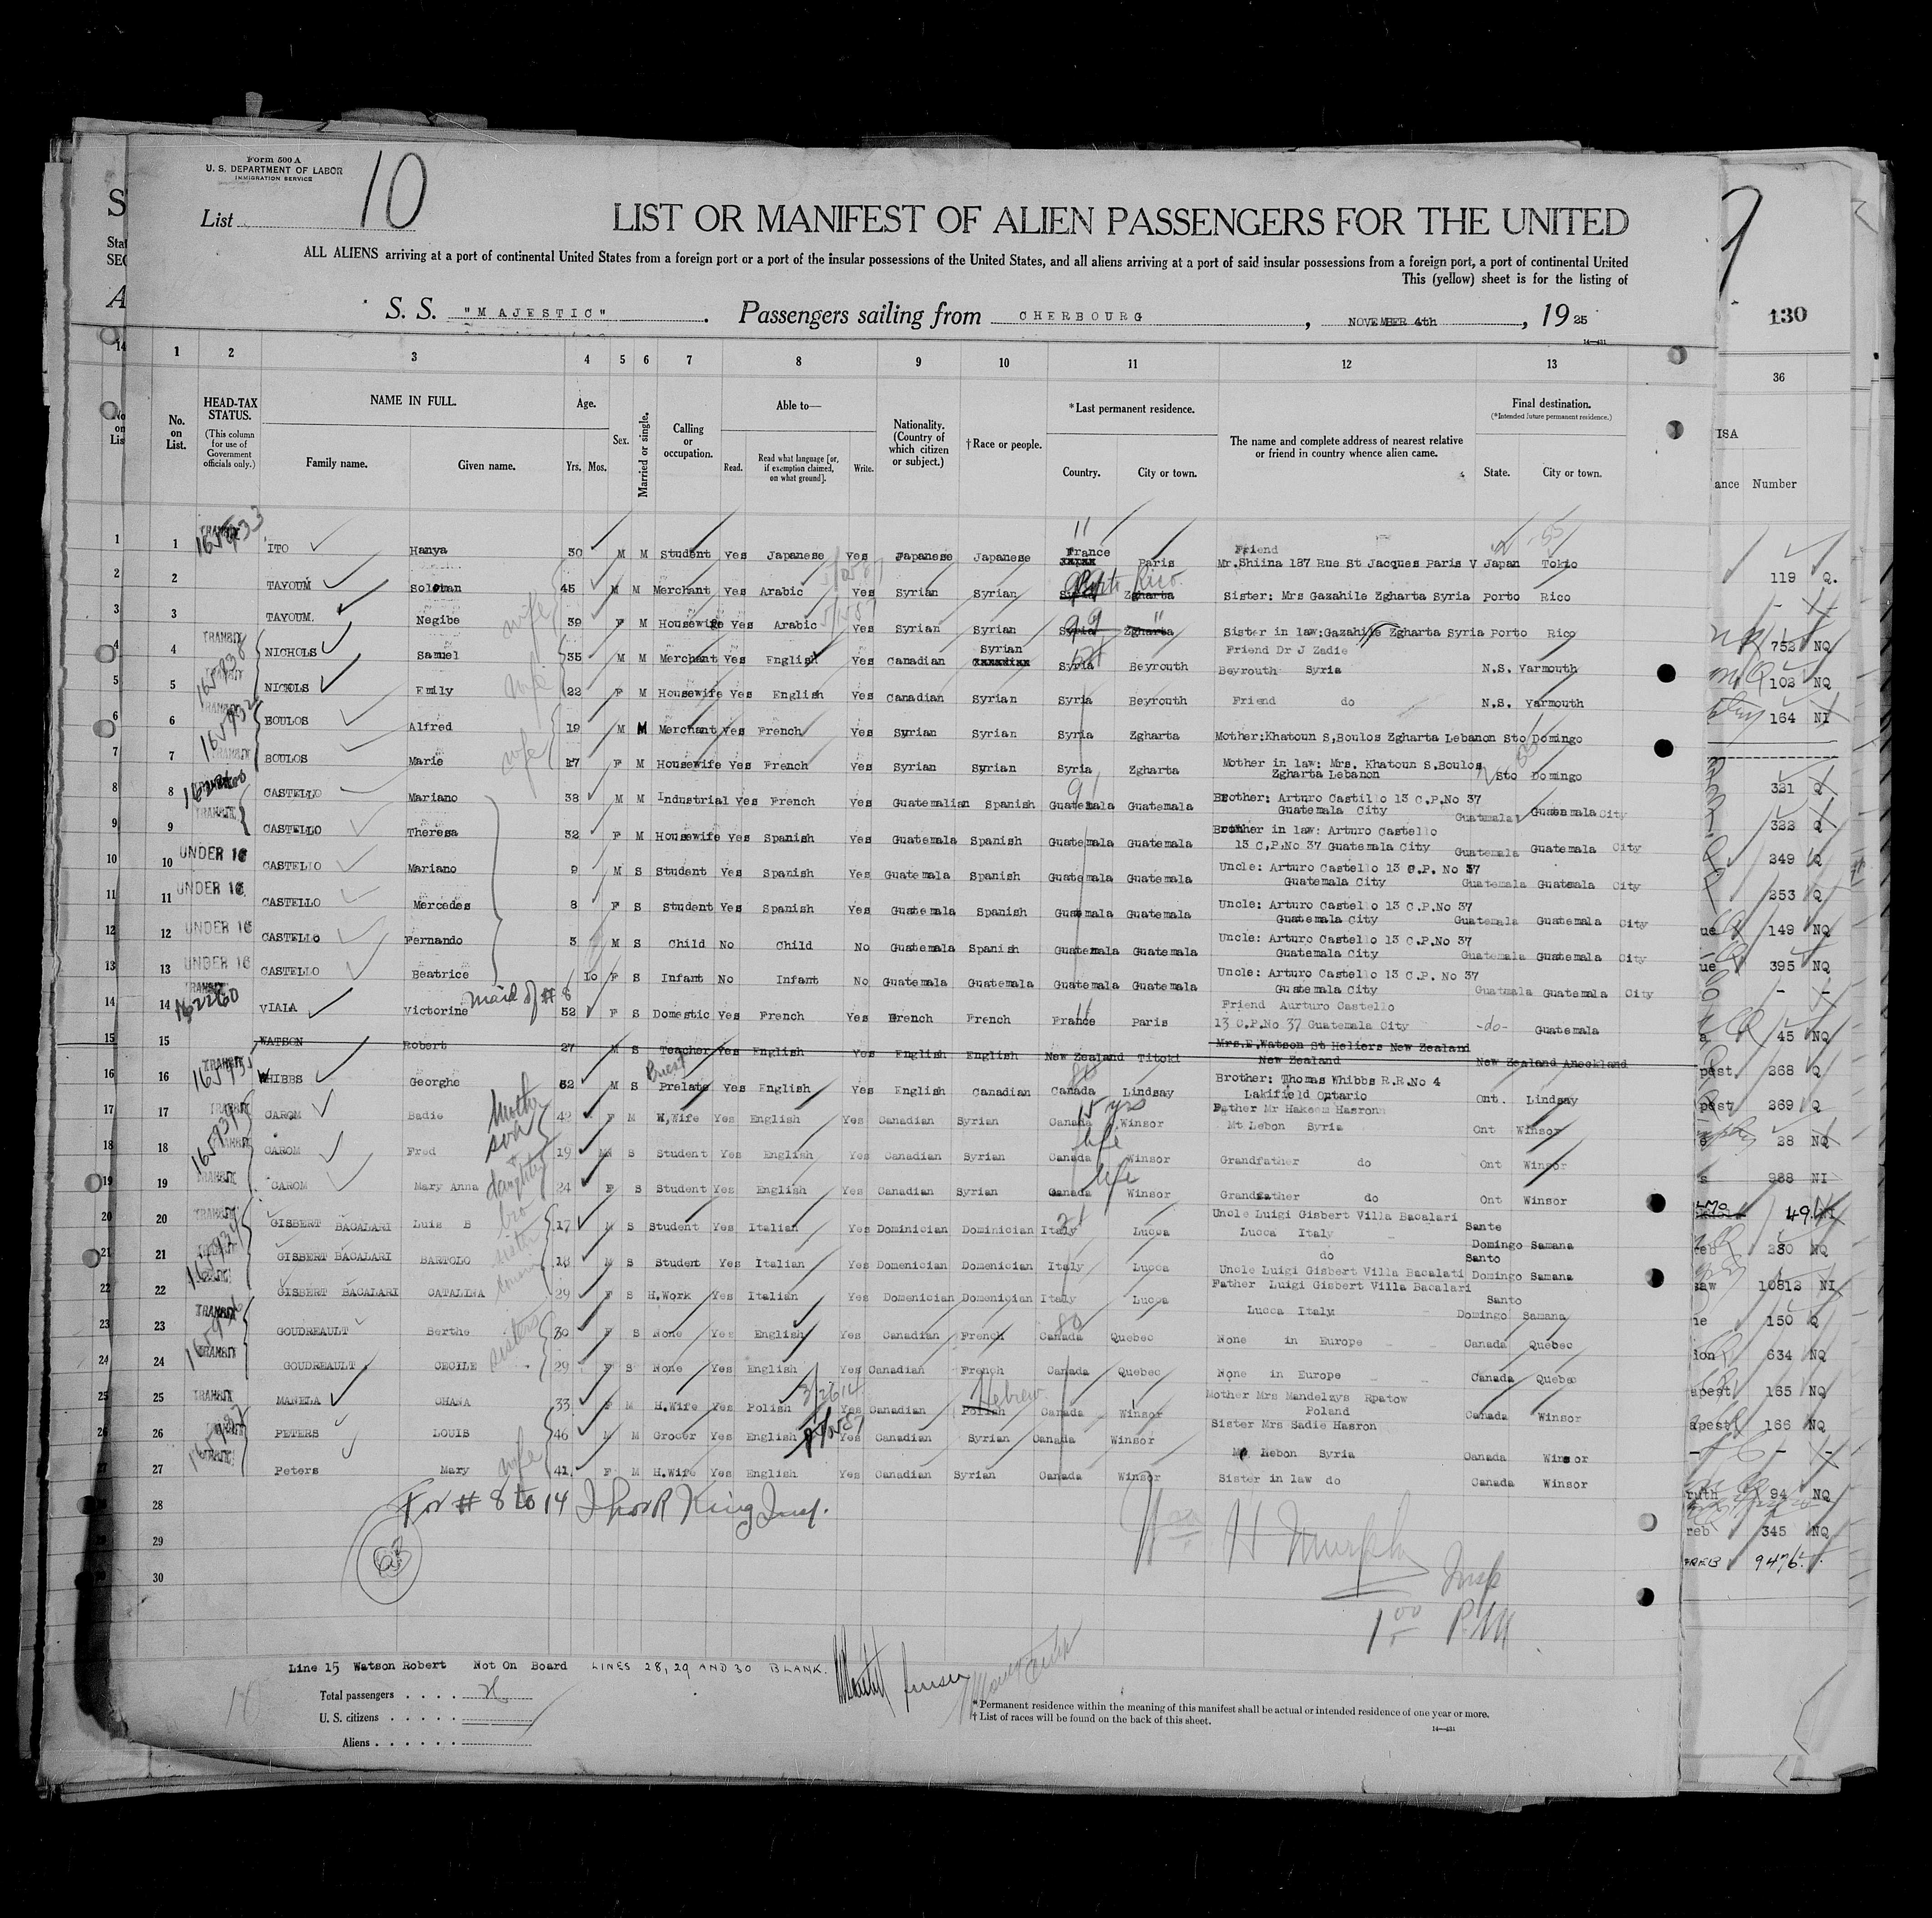 Form 500 A
U. S. DEPARTMENT OF LABOR
IMMIGRATION SERVICE
List 10
LIST OR MANIFEST OF ALIEN PASSENGERS FOR THE UNITED
ALL ALIENS arriving at a port of continental United States from a foreign port or a port of the insular possessions of the United States, and all aliens arriving at a port of said insular possessions from a foreign port, a port of continental United
This (yellow) sheet is for the listing of
S. S. "MAJESTIC". Passengers sailing from CHERBOURG, NOVEMBER 4th, 1925
130
14—431
1 2 3 4 5 6 7 8 9 10 11 12 13 36
No. on List. HEAD-TAX STATUS. (This column for use of Government officials only.) NAME IN FULL. Family name. Given name. Age. Yrs. Mos. Sex. Married or single. Calling or occupation. Able to— Read. Read what language [or, if exemption claimed, on what ground]. Write. Nationality. (Country of which citizen or subject.) †Race or people. *Last permanent residence. Country. City or town. The name and complete address of nearest relative or friend in country whence alien came. Final destination. (*Intended future permanent residence.) State. City or town.
ISA
ance Number
1 TRANSIT 165933 ITO Hanya 30 M M Student Yes Japanese Yes Japanese Japanese France Japan Paris Friend Mr.Shiina 187 Rue St Jacques Paris V Japan Tokio
119 Q.
2 TAYOUM 45 M M Merchant Yes Arabic Yes Syrian Syrian Syria Zgharta Porto Rico Sister: Mrs Gazahile Zgharta Syria Porto Rico
3 TAYOUM. Negibe wife 39 F M Housewife Yes Arabic Yes Syrian Syrian Syria Zgharta Sister in law:Gazahile Zgharta Syria Porto Rico
752 NQ
4 TRANSIT 165938 NICHOLS Samuel 35 M M Merchant Yes English Yes Canadian Syrian Canadian Syria Beyrouth Friend Dr J Zadie Beyrouth Syria N.S. Yarmouth
102 NQ
5 NICHOLS Emily wife 22 F M Housewife Yes English Yes Canadian Syrian Syria Beyrouth Friend do N.S. Yarmouth
164 NI
6 TRANSIT 165932 BOULOS Alfred 19 M M Merchant Yes French Yes Syrian Syrian Syria Zgharta Mother:Khatoun S,Boulos Zgharta Lebanon Sto Domingo
7 TRANSIT BOULOS Marie wife 17 F M Housewife Yes French Yes Syrian Syrian Syria Zgharta Mother in law: Mrs. Khatoun S.Boulos Zgharta Lebanon Sto Domingo
321 Q
8 TRANSIT CASTELLO Mariano 38 M M Industrial Yes French Yes Guatemalian Spanish Guatemala Guatemala Brother: Arturo Castillo 13 C.P.No 37 Guatemala City Guatemala Guatemala City
322 Q
9 CASTELLO Theresa 32 F M Housewife Yes Spanish Yes Guatemala Spanish Guatemala Guatemala Brother in law: Arturo Castello 13 C.P.No 37 Guatemala City Guatemala Guatemala City
249 Q
10 UNDER 16 CASTELLO Mariano 9 M S Student Yes Spanish Yes Guatemala Spanish Guatemala Guatemala Uncle: Arturo Castello 13 C.P. No 37 Guatemala City Guatemala Guatemala City
253 Q
11 UNDER 16 CASTELLO Mercedes 8 F S Student Yes Spanish Yes Guatemala Spanish Guatemala Guatemala Uncle: Arturo Castello 13 C.P.No 37 Guatemala City Guatemala Guatemala City
ue 149 NQ
12 UNDER 16 CASTELLO Fernando 3 M S Child No Child No Guatemala Spanish Guatemala Guatemala Uncle: Arturo Castello 13 C.P.No 37 Guatemala City Guatemala Guatemala City
ue 395 NQ
13 UNDER 16 CASTELLO Beatrice 10 F S Infant No Infant No Guatemala Guatemala Guatemala Guatemala Uncle: Arturo Castello 13 C.P. No 37 Guatemala City Guatmala Guatemala City
14 TRANSIT 162260 VIALA Victorine maid of # 8 52 F S Domestic Yes French Yes French French France Paris Friend Aurturo Castello 13 C.P.No 37 Guatemala City -do- Guatemala
45 NQ
15 WATSON Robert 27 M S Teacher Yes English Yes English English New Zealand Titoki Mrs.E.Watson St Heliers New Zealand New Zealand New Zealand Aneckland
pest 268 Q
16 TRANSIT WHIBBS Georghe 52 M S Priest Prelate Yes English Yes English Canadian Canada Lindsay Brother: Thomas Whibbs R.R.No 4 Lakifield Ontario Ont. Lindsay
pest 269 Q
17 TRANSIT CAROM Badie Mother 42 F M H,Wife Yes English Yes Canadian Syrian Canada 15 yrs Winsor Father Mr Hakeem Hasron Mt Lebon Syria Ont Winsor
28 NQ
18 TRANSIT CAROM Fred son 19 M S Student Yes English Yes Canadian Syrian Canada life Winsor Grandfather do Ont Winsor
988 NI
19 TRANSIT CAROM Mary Anna daughter 24 F S Student Yes English Yes Canadian Syrian Canada life Winsor Grandfather do Ont Winsor
49
20 TRANSIT GISBERT BACALARI Luis B bro 17 M S Student Yes Italian Yes Dominician Dominician Italy Lucca Uncle Luigi Gisbert Villa Bacalari Lucca Italy Sante Domingo Samana
reb 230 NQ
21 GISBERT BACALARI BARTOLO 18 M S Student Yes Italian Yes Domenician Domenician Italy Lucca do Uncle Luigi Gisbert Villa Bacalati Santo Domingo Samana
saw 10812 NI
22 GISBERT BACALARI CATALINA 29 F S H.Work Yes Italian Yes Domenician Domenician Italy Lucca Father Luigi Gisbert Villa Bacalari Lucca Italy Santo Domingo Samana
150 Q
23 TRANSIT GOUDREAULT Berthe sisters 30 F S None Yes English Yes Canadian French Canada Quebec None in Europe Canada Quebec
ion 634 NQ
24 TRANSIT GOUDREAULT CECILE 29 F S None Yes English Yes Canadian French Canada Quebec None in Europe Canada Quebec
apest 165 NQ
25 TRANSIT MANELA CHANA 33 F M H.Wife Yes Polish Yes Canadian Polish Hebrew Canada Winsor Mother Mrs Mandelzys Rpatow Poland Canada Winsor
apest 166 NQ
26 PETERS LOUIS 46 M M Grocer Yes English Yes Canadian Syrian Canada Winsor Sister Mrs Sadie Hasron Mt Lebon Syria Canada Winsor
27 Peters Mary wife 41 F M H.Wife Yes English Yes Canadian Syrian Canada Winsor Sister in law do Canada Winsor
ruth 94 NQ
28 For # 8 to 14 King Insp.
reb 345 NQ
29 H Murphy Insp
9476
30
1 00 P.M
Line 15 Watson Robert Not On Board LINES 28, 29 AND 30 BLANK.
Total passengers . . . . 26
U. S. citizens . . . . .
Aliens . . . . . .
* Permanent residence within the meaning of this manifest shall be actual or intended residence of one year or more.
† List of races will be found on the back of this sheet.
14—431